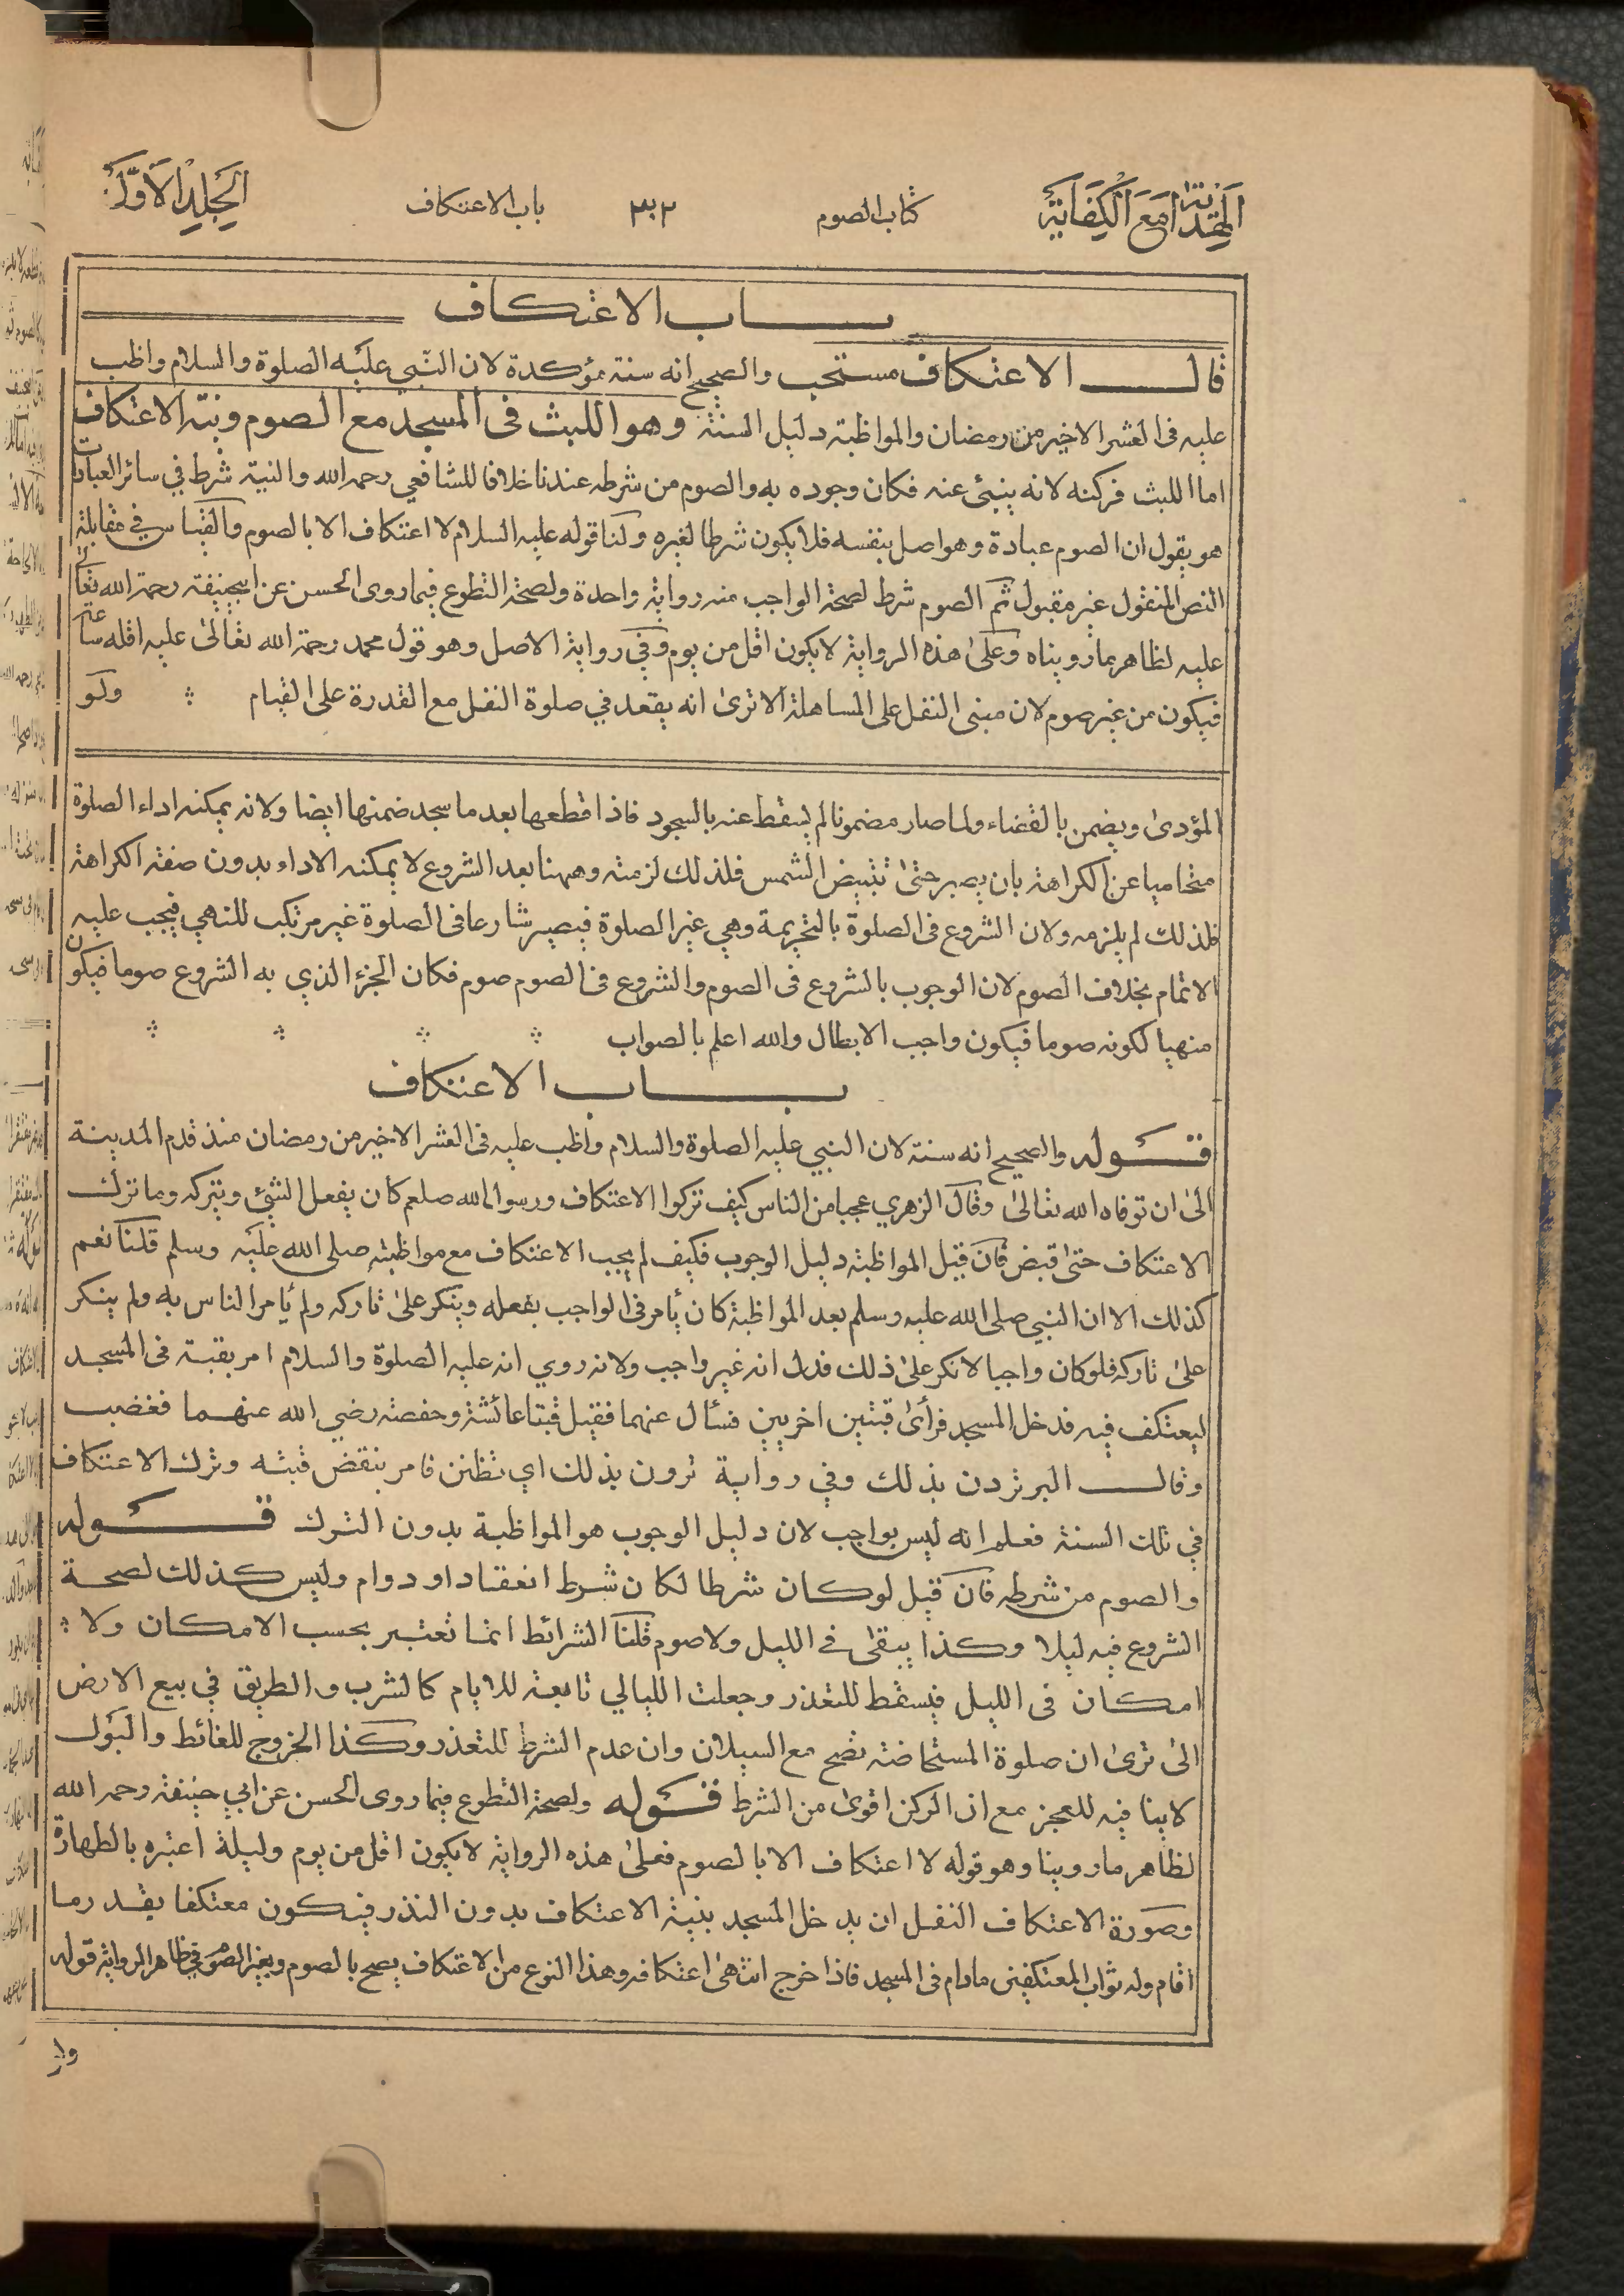 الهداية مع الكفاية
كتاب الصوم
باب الاعتكاف
الجلد الاول
بــاب الاعتكاف
قالــ الاعتكاف مستحب والصحيح انه سنة مؤكدة لان النبي عليه الصلوة والسلام واظب
عليه فى العشر الاخير من رمضان والمواظبة دليل السنة وهو اللبث فى المسجد مع الصوم ونية الاعتكاف
اما اللبث فركنه لانه ينبئ عنه فكان وجوده به والصوم من شرطه عندنا خلافا للشافعي رحمه الله والنية شرط في سائر العبادات
هو يقول ان الصوم عبادة وهو اصل بنفسه فلا يكون شرطا لغيره ولنا قوله عليه السلام لا اعتكاف الا بالصوم والقياس في مقابلة
النص المنقول غير مقبول ثم الصوم شرط لصحة الواجب منه رواية واحدة ولصحة التطوع فيما روى الحسن عن ابيحنيفة رحمة الله تعالى
عليه لظاهر ما رويناه وعلى هذه الرواية لا يكون اقل من يوم وفي رواية الاصل وهو قول محمد رحمة الله تعالى عليه اقله ساعة
فيكون من غير صوم لان مبنى النفل على المساهلة الا ترى انه يقعد في صلوة النفل مع القدرة على القيام ولو
المؤدى ويضمن بالقضاء ولما صار مضمونا لم يسقط عنه بالسجود فاذا قطعها بعد ما سجد ضمنها ايضا ولانه يمكنه اداء الصلوة
متحاميا عن الكراهة بان يصبر حتى تبيض الشمس فلذلك لزمته وههنا بعد الشروع لا يمكنه الاداء بدون صفة الكراهة
فلذلك لم يلزمه ولان الشروع فى الصلوة بالتحريمة وهي غير الصلوة فيصير شارعا فى الصلوة غير مرتكب للنهي فيجب عليه
الاتمام بخلاف الصوم لان الوجوب بالشروع فى الصوم والشروع فى الصوم صوم فكان الجزء الذي به الشروع صوما فيكون
منهيا لكونه صوما فيكون واجب الابطال والله اعلم بالصواب
بــاب الاعتكاف
قــوله والصحيح انه سنة لان النبي عليه الصلوة والسلام واظب عليه فى العشر الاخير من رمضان منذ قدم المدينة
الى ان توفاه الله تعالى وقال الزهري عجبا من الناس كيف تركوا الاعتكاف ورسول الله صلعم كان يفعل الشئ ويتركه وما ترك
الاعتكاف حتى قبض فان قيل المواظبة دليل الوجوب فكيف لم يجب الاعتكاف مع مواظبته صلى الله عليه وسلم قلنا نعم
كذلك الا ان النبي صلى الله عليه وسلم بعد المواظبة كان يأمر فى الواجب بفعله وينكر على تاركه ولم يأمر الناس به ولم ينكر
على تاركه فلو كان واجبا لانكر على ذلك فدل انه غير واجب ولانه روي انه عليه الصلوة والسلام امر بقبة فى المسجد
ليعتكف فيه فدخل المسجد فرأى قبتين اخريين فسأل عنهما فقيل قبتا عائشة وحفصة رضي الله عنهما فغضب
وقالــ البر تردن بذلك وفي رواية ترون بذلك اي تظنن فامر بنقض قبته وترك الاعتكاف
في تلك السنة فعلم انه ليس بواجب لان دليل الوجوب هو المواظبة بدون الترك قــوله
والصوم من شرطه فان قيل لو كان شرطا لكان شرط انعقاد او دوام وليس كذلك لصحة
الشروع فيه ليلا وكذا يبقى فى الليل ولا صوم قلنا الشرائط انما تعتبر بحسب الامكان ولا
امكان فى الليل فيسقط للتعذر وجعلت الليالي تابعة للايام كالشرب والطريق في بيع الارض
الى ترى ان صلوة المستحاضة تصح مع السيلان وان عدم الشرط للتعذر وكذا الخروج للغائط والبول
لا ينافيه للعجز مع ان الركن اقوى من الشرط قــوله ولصحة التطوع فيما روى الحسن عن ابي حنيفة رحمه الله
لظاهر ما روينا وهو قوله لا اعتكاف الا بالصوم فعلى هذه الرواية لا يكون اقل من يوم وليلة اعتبره بالطهارة
وصورة الاعتكاف النفل ان يدخل المسجد بنية الاعتكاف بدون النذر فيكون معتكفا بقدر ما
اقام وله ثواب المعتكفين مادام فى المسجد فاذا خرج انتهى اعتكافه وهذا النوع من الاعتكاف يصح بالصوم وبغير الصوم في ظاهر الرواية قوله